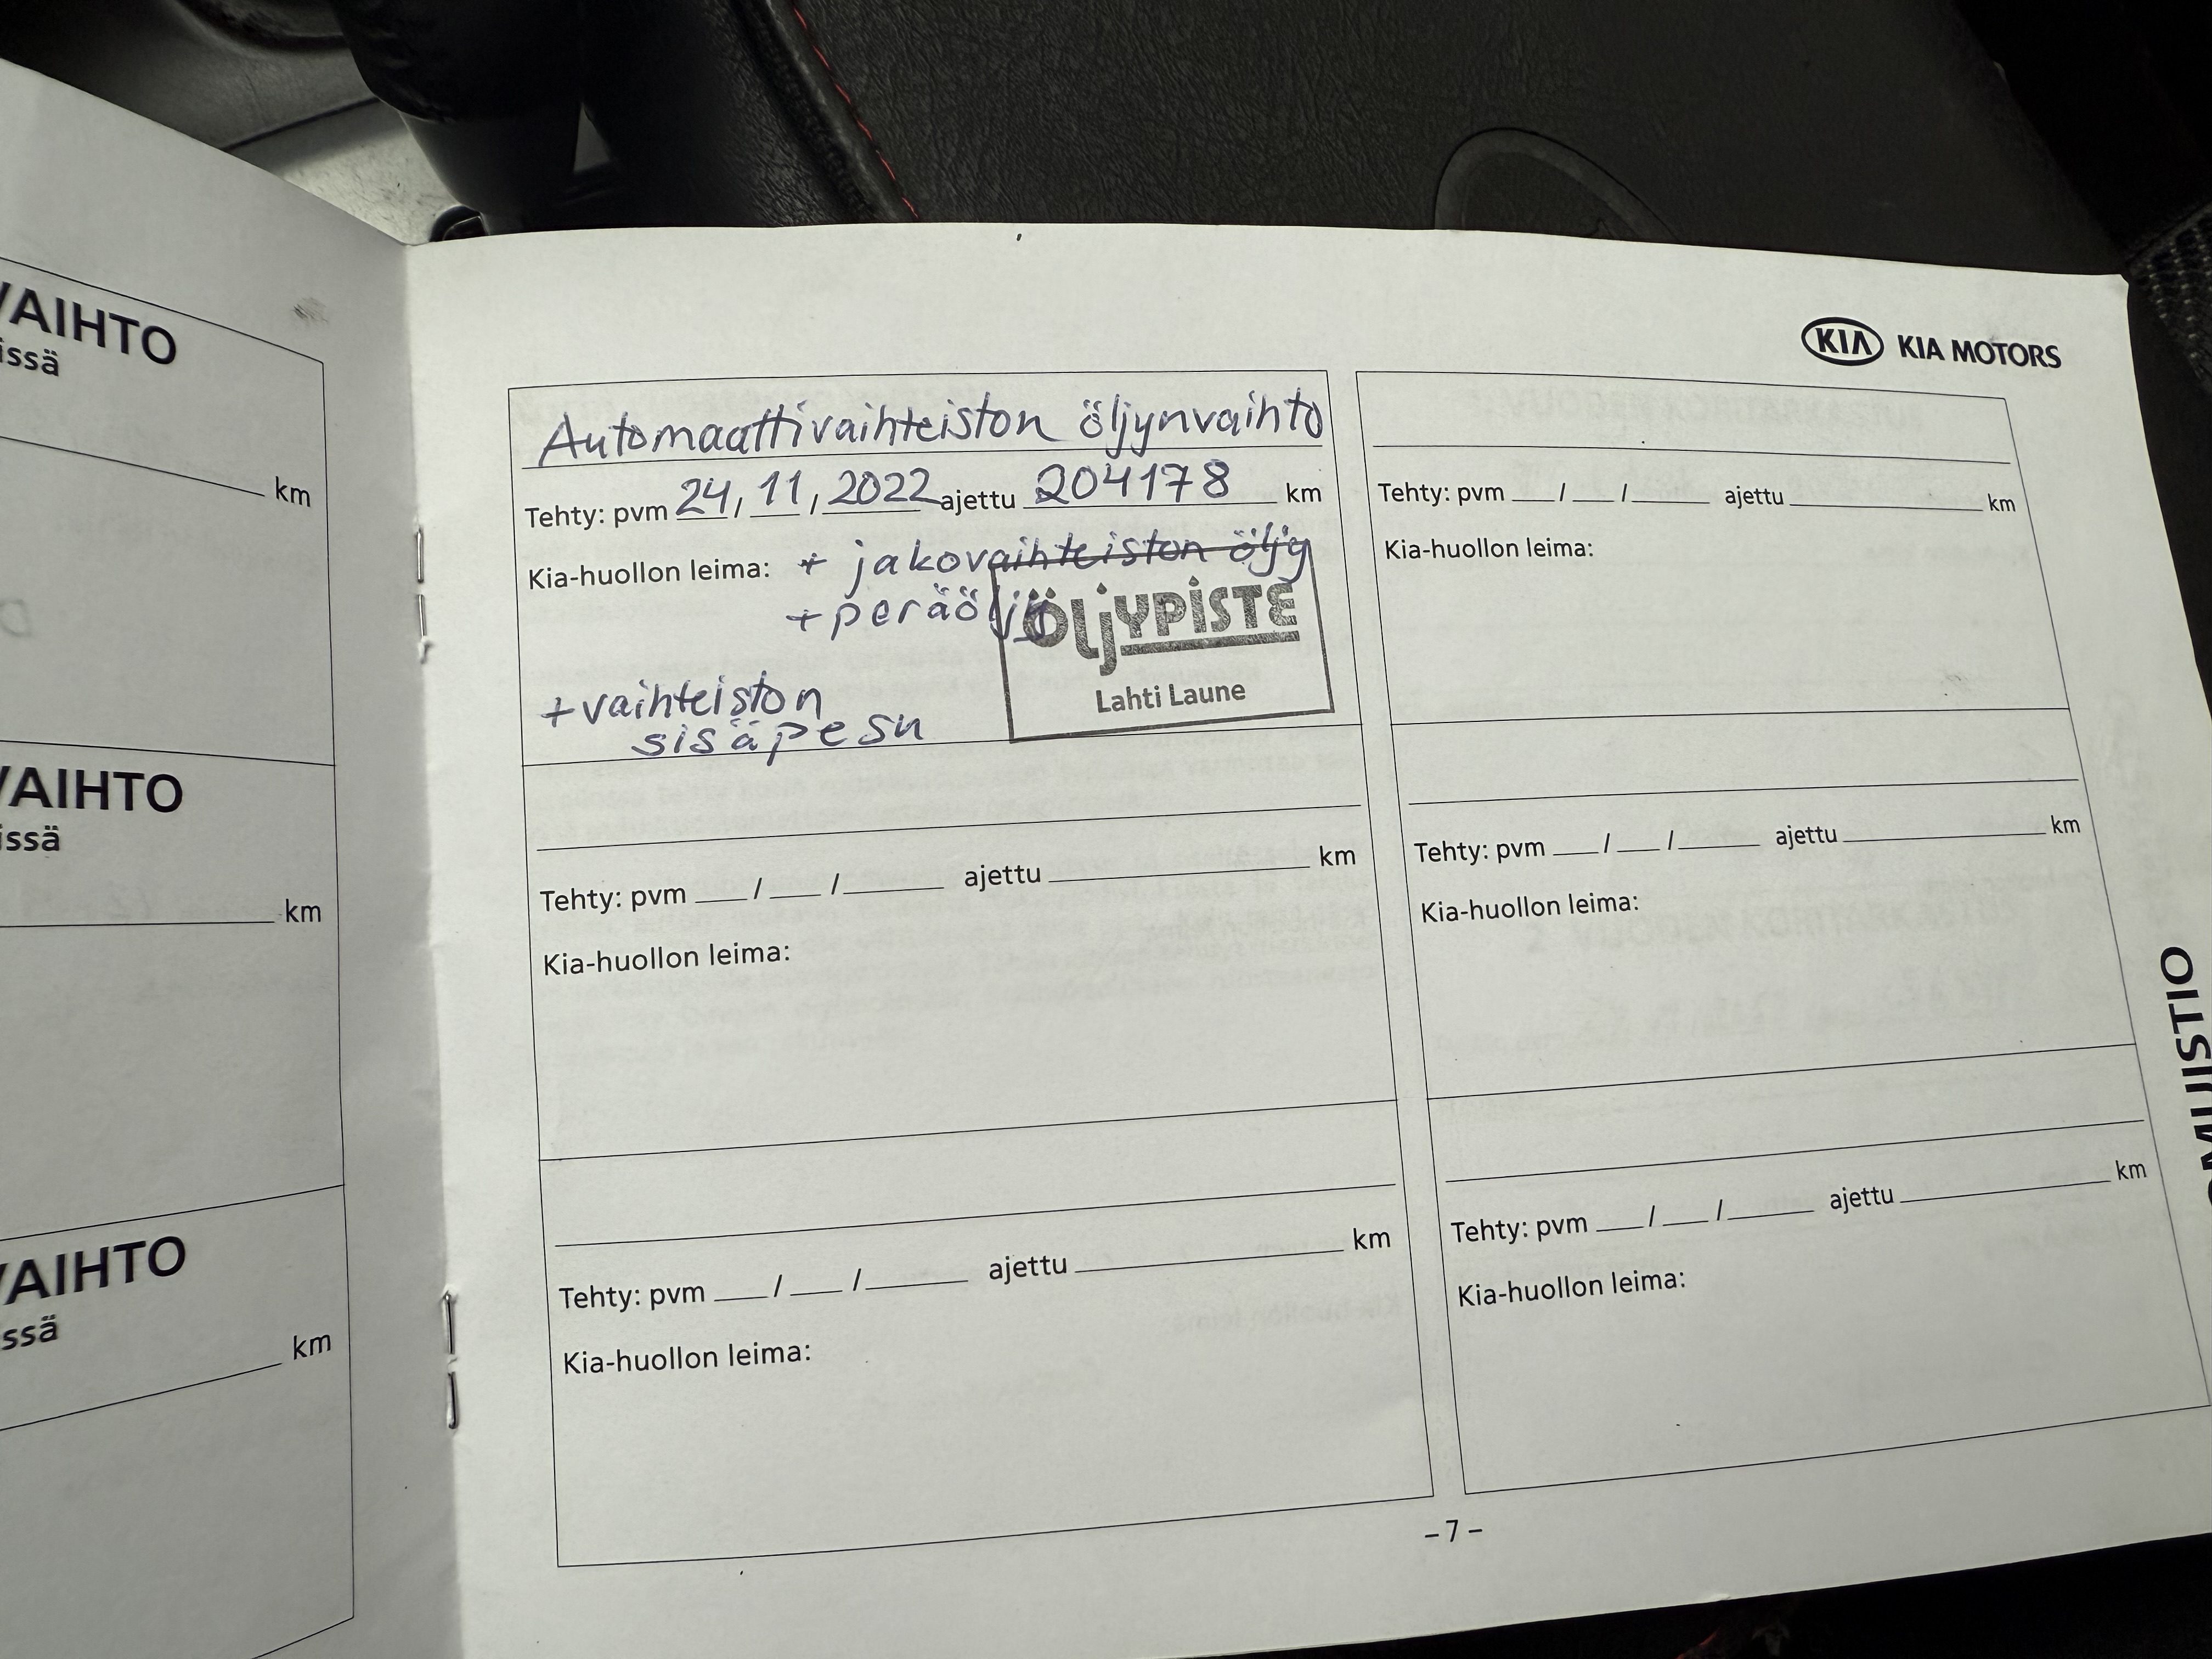 VAIHTO
issä
km
VAIHTO
issä
km
VAIHTO
ssä
km
KIA KIA MOTORS
Automaattivaihteiston öljynvaihto
Tehty: pvm 24 / 11 / 2022 ajettu 204178 km
Kia-huollon leima: + jakovaihteiston öljy
+ peräöljy
ÖLjYPiSTE
Lahti Laune
+ vaihteiston
sisäpesu
Tehty: pvm ___/___/______ ajettu ____________ km
Kia-huollon leima:
Tehty: pvm ___/___/______ ajettu ____________ km
Kia-huollon leima:
Tehty: pvm ___/___/______ ajettu ____________ km
Kia-huollon leima:
Tehty: pvm ___/___/______ ajettu ____________ km
Kia-huollon leima:
Tehty: pvm ___/___/______ ajettu ____________ km
Kia-huollon leima:
MUISTIO
– 7 –